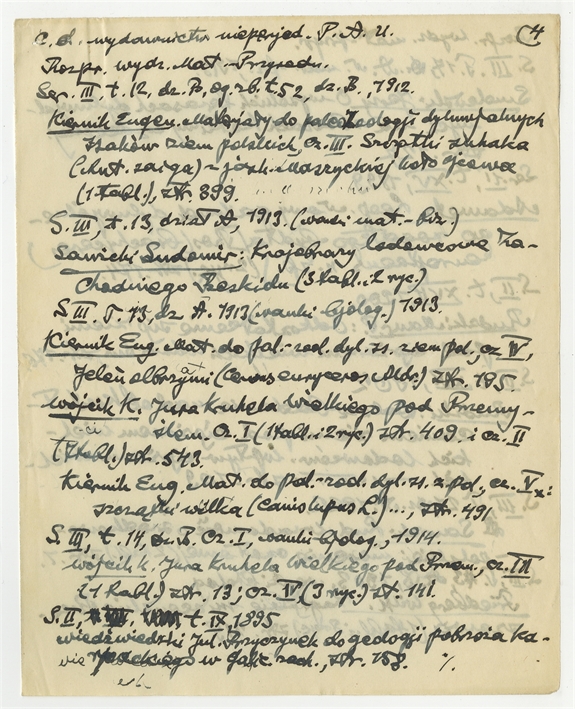 C. d. wydawnictw nieperjod. P. A. U. 4
Rozpr. wydz. Mat.-Przyrodn.
Ser. III, t. 12, dz. B, og. zb. t. 52, dz. B., 1912.
Kiernik Eugen. Materjały do paleozoologji dyluwjalnych
ssaków ziem polskich, cz. III. Szczątki suhaka
(Ant. saiga) z jask. Maszyckiej koło Ojcowa
(1 tabl.), str. 399.
S. III, t. 13, dział A, 1913. (nauki mat.-fiz.)
Sawicki Ludomir: Krajobrazy lodowcowe Za-
chodniego Beskidu (3 tabl. i 2 ryc.)
S III. T. 13, dz. A. 1913 (nauki bjolog.) 1913.
Kiernik Eug. Mat. do pal.-zool. dyl. ss. ziem pol., cz IV,
Jeleń olbrzymi (Cervus euryceros Aldr.) str. 185.
Wójcik K. Jura Kruhela Wielkiego pod Przemy-
ślem. Cz. I (1 tabl. i 2 ryc.) str. 409. i cz. II
tabl.) str. 543.
Kiernik Eug. Mat. do pal.-zool. dyl. ss. z. pol., cz. V:
szczątki wilka (Canis lupus L.) ..., str. 491
S. III, t. 14, dz. B. Cz. I, nauki bjolog., 1914.
Wójcik K. Jura Kruhela Wielkiego pod Przem., cz. III
(1 tabl.) str. 13; cz. IV (3 ryc.) st. 141.
S. II, t. IX, 1895
Niedźwiedzki Jul. Przyczynek do geologji pobrzeża Ka-
rpackiego w Galic. zach., str. 158. %.